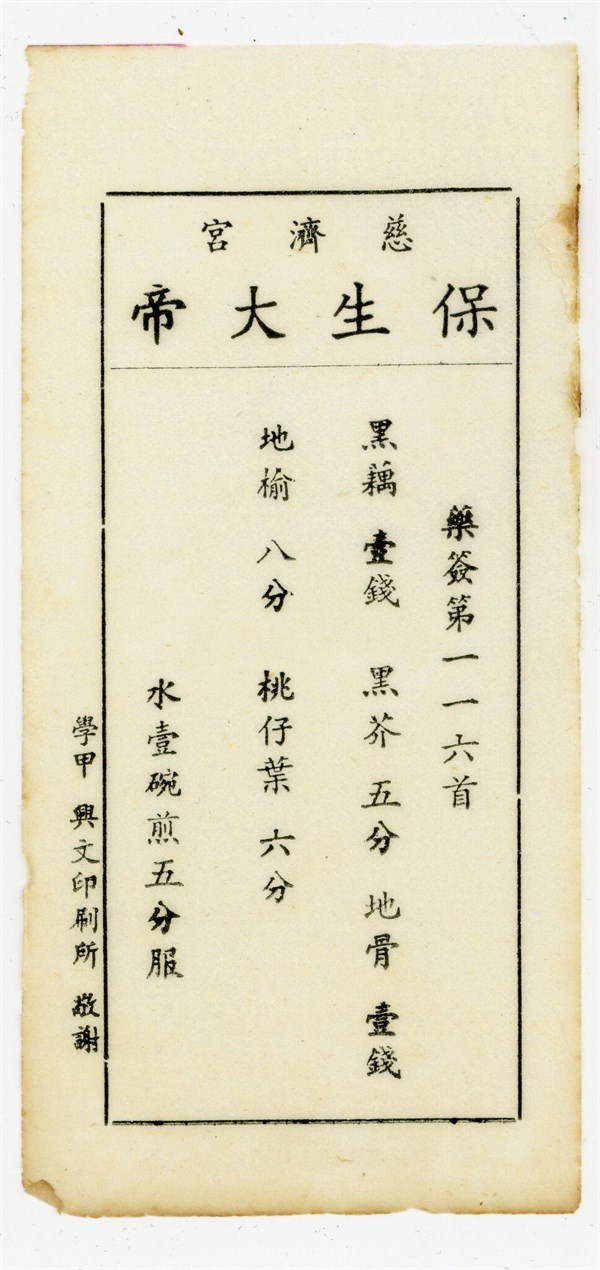 慈濟宮
保生大帝
藥簽第一一六首
黑藕 壹錢 黑芥 五分 地骨 壹錢
地榆 八分 桃仔葉 六分
水壹碗煎五分服
學甲 興文印刷所 敬謝